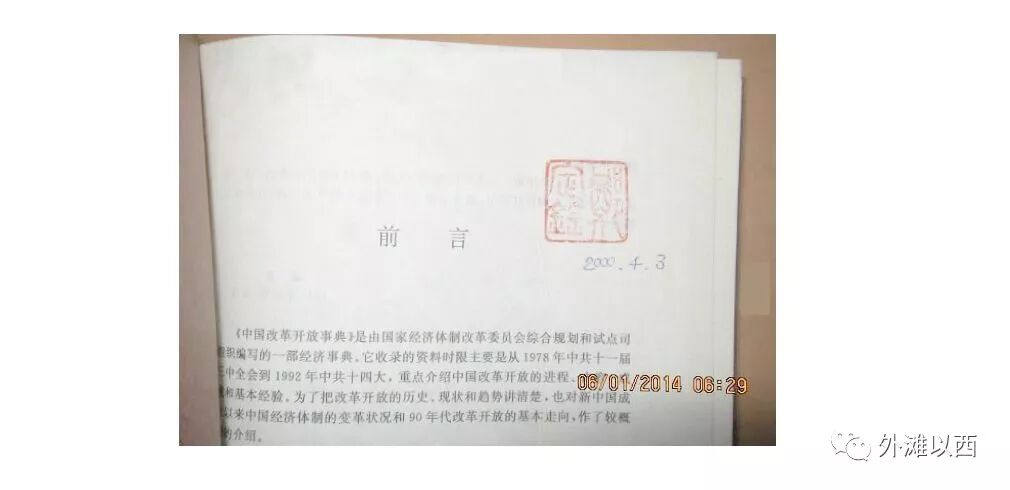 前 言
2000.4.3
《中国改革开放事典》是由国家经济体制改革委员会综合规划和试点司
组织编写的一部经济事典。它收录的资料时限主要是从1978年中共十一届
三中全会到1992年中共十四大，重点介绍中国改革开放的进程、
和基本经验。为了把改革开放的历史、现状和趋势讲清楚，也对新中国成
以来中国经济体制的变革状况和90年代改革开放的基本走向，作了较概
的介绍。
06/01/2014 06:29
外滩以西